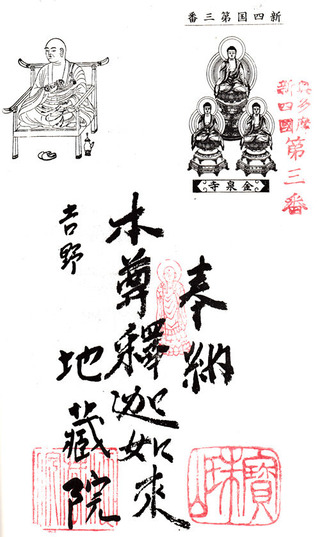 新四国第三番
金泉寺
奥多摩
新四國
第三番
奉納
本尊釋迦如來
吉野
地藏院
寶珠山